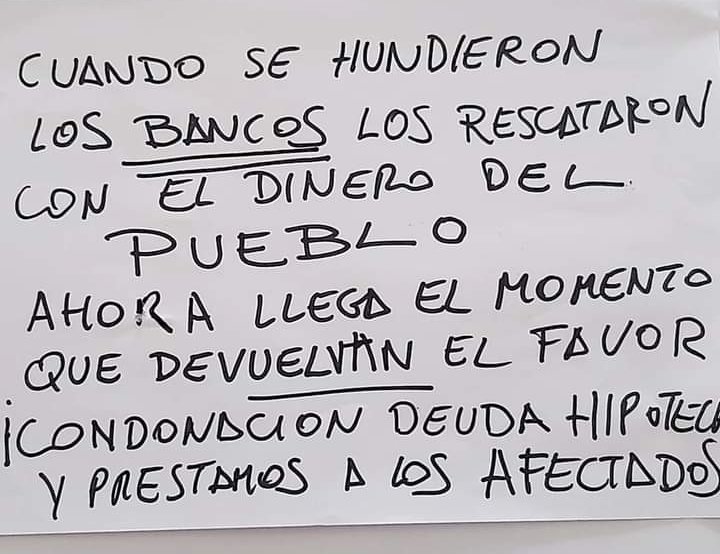 CUANDO SE HUNDIERON
LOS BANCOS LOS RESCATARON
CON EL DINERO DEL
PUEBLO
AHORA LLEGA EL MOMENTO
QUE DEVUELVAN EL FAVOR
¡CONDONACION DEUDA HIPOTECA
Y PRESTAMOS A LOS AFECTADOS